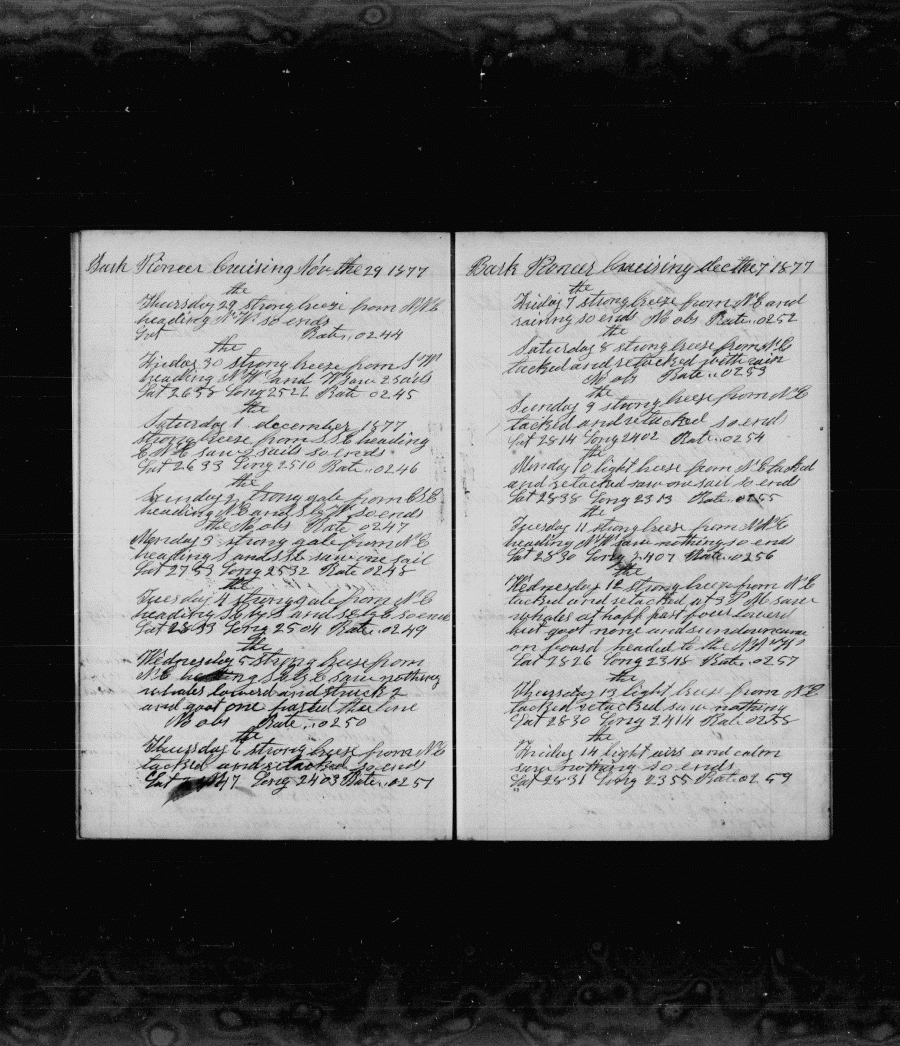 Bark Pioneer Cruising Nov the 29 1877
the
Thursday 29 strong breeze from N N E
heading N W so ends
Lat Rate .. 0244
the
Friday 30 strong breeze from S W
heading N W and W saw 2 sails
Lat 2658 Long 2522 Rate 0245
the
Saturday 1 december 1877
strong breeze from S S E heading
E N E saw 2 sails so ends
Lat 2633 Long 2510 Rate .. 0246
the
Sunday 2 strong gale from E S E
heading N E and S by W so ends
the No obs Rate 0247
Monday 3 strong gale from N E
heading S and S E saw one sail
Lat 2753 Long 2532 Rate 0248
the
Tuesday 4 strong gale from N E
heading S by E and S E by E so ends
Lat 2833 Long 2504 Rate .. 0249
the
Wednesday 5 strong breese from
N E heading S by E saw nothing
whales lowerd and struck 2
and goot one parted the line
No obs Rate .. 0250
the
Thursday 6 strong breese from N E
tacked and retacked so ends
Lat 47 Long 2403 Rate .. 0251
Bark Pioneer Cruising dec the 7 1877
the
Friday 7 strong breeze from N E and
rainny so ends No obs Rate .. 0252
the
Saturday 8 strong breese from N E
tacked and retacked with rain
No obs Rate .. 0253
the
Sunday 9 strong breese from N E
tacked and retacked so ends
Lat 2814 Long 2402 Rate .. 0254
the
Monday 10 light breese from N E tacked
and retacked saw one sail so ends
Lat 2838 Long 2313 Rate .. 0255
the
Tuesday 11 strong breese from N N E
heading N W saw nothing so ends
Lat 2830 Long 2407 Rate .. 0256
the
Wednesday 12 strong breese from N E
tacked and retacked at 3 P M saw
whales at happ past fouer lowerd
but goot none and sundown came
on board headed to the N N W
Lat 2826 Long 2348 Rate .. 0257
the
Thursday 13 light breese from N E
tacked retacked saw nothing
Lat 2830 Long 2414 Rate 0258
the
Friday 14 light airs and calm
saw nothing so ends
Lat 2831 Long 2355 Rate 0259